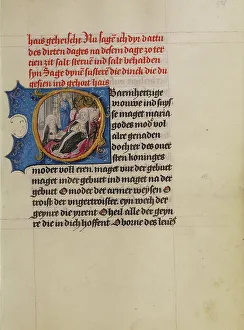 haus geheischt Nu sagen ich dyr dattu
des dirten dages na desem dage zo ter
cien zit salt sterue und salt behalden
syn Sage dyne sustere die dinck die du
gesien und gehort hais
Barmhertzige
vrouwe ind suyse
maget maria
godes mod vol
alre genaden
dochter des ouer
sten koninges
moder voll eren. maget vur der geburt
maget inder geburt ind maget na der
geburt O moder der armer weysen O
troist der vngetroister. eyn wech der
geynre die yrrent O heil alle der geyn
re die in dich hoffent O borne des